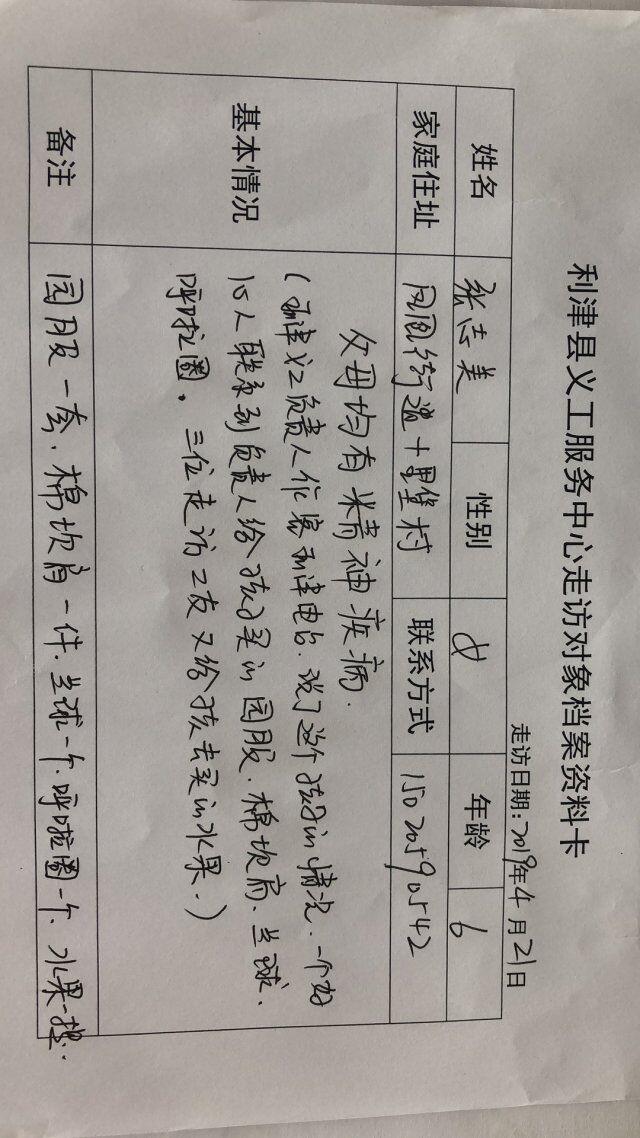 利津县义工服务中心走访对象档案资料卡
走访日期:2019年4月21日
姓名 张志美 性别 女 年龄 6
家庭住址 凤凰街道十里堡村 联系方式 15020590542
基本情况
父母均有精神疾病.
(利津义工负责人作客利津电台.说了这个孩子的情况.一个好
心人联系到负责人给孩子买的园服.棉坎肩.兰球.
呼啦圈.三位走访工友又给孩子买的水果.)
备注 园服一套.棉坎肩一件.兰球一个.呼啦圈一个.水果一提.